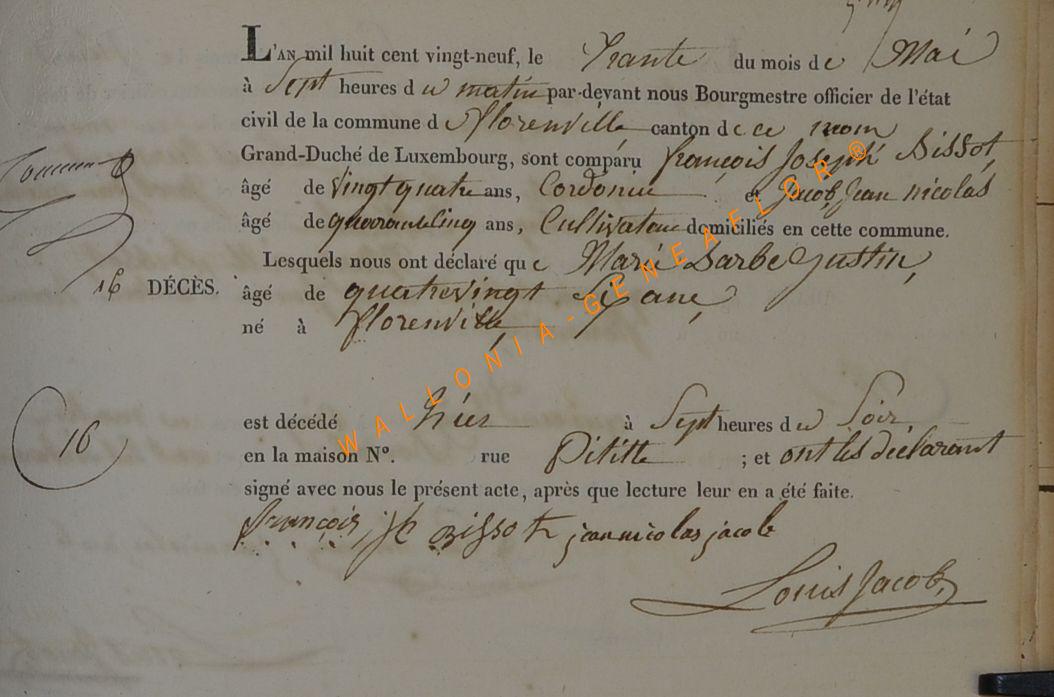 L'AN mil huit cent vingt-neuf, le trante du mois de Mai
à Sept heures du matin par-devant nous Bourgmestre officier de l'état
civil de la commune de florenville canton de ce nom
Grand-Duché de Luxembourg, sont comparu françois Joseph Bissot,
âgé de vingt quatre ans, Cordonie et Jacob Jean nicolas
âgé de quarante cinq ans, Cultivateur domiciliés en cette commune.
Lesquels nous ont déclaré que Marie Barbe Justin,
16 DÉCÈS. âgé de quatrevingt ané,
né à florenville
est décédé hier à Sept heures du Soir,
16
en la maison N°. rue Pititte ; et ont les déclarant
signé avec nous le présent acte, après que lecture leur en a été faite.
françois jh Bissot jean nicolas jacob
Louis Jacob,
WALLONIA-GENEAFLOR®